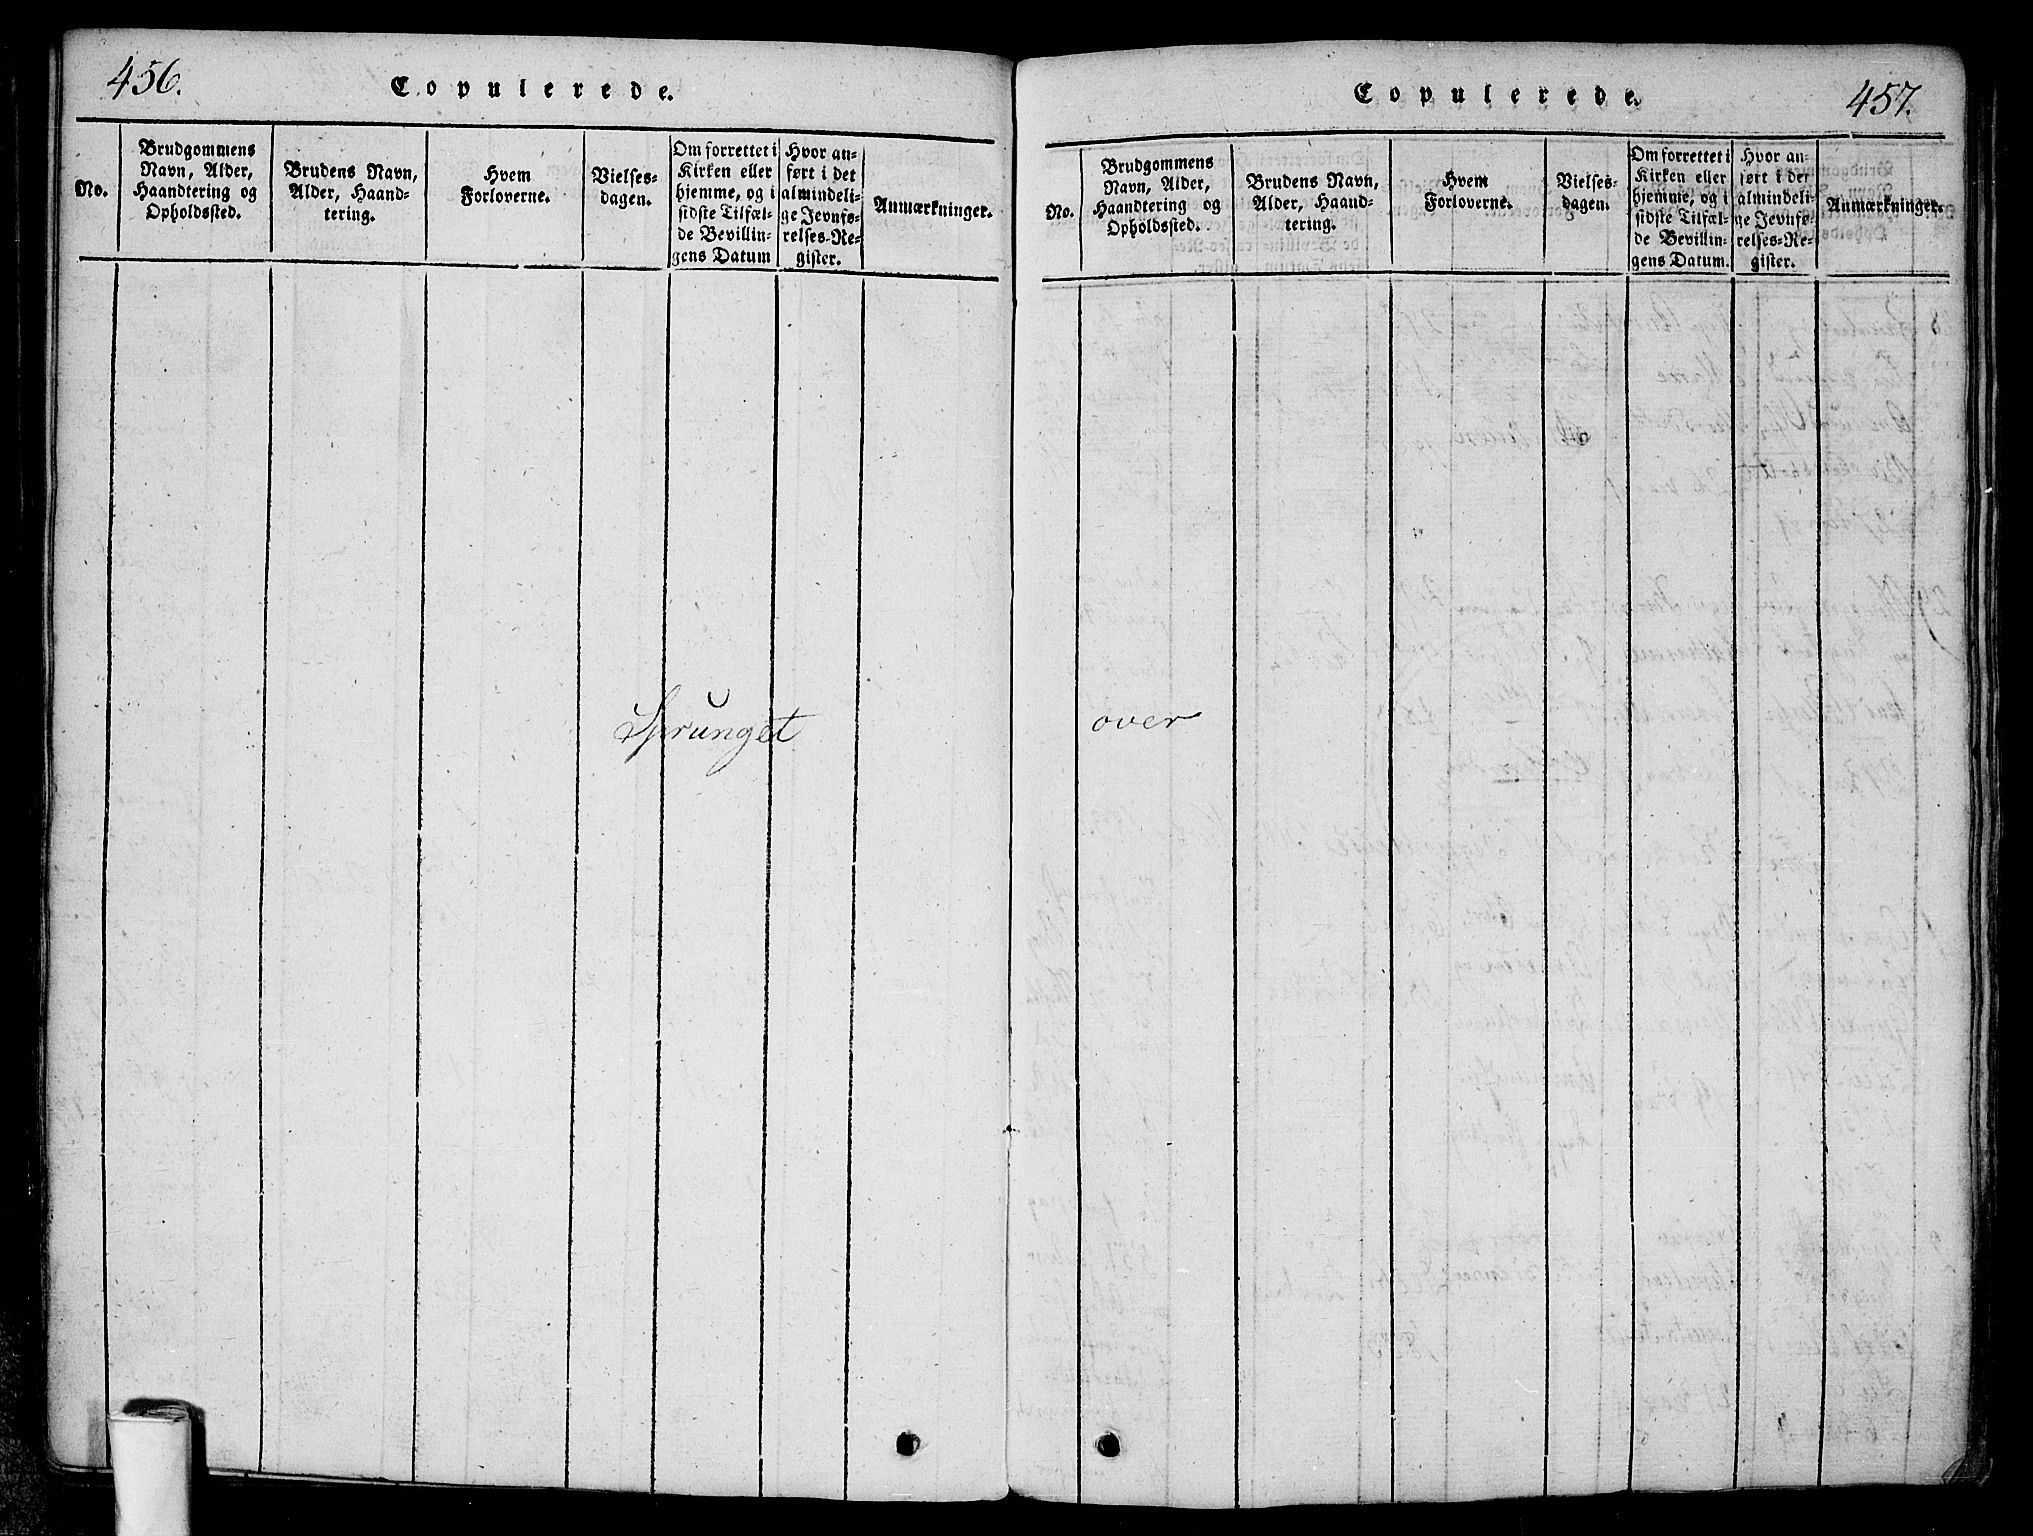 456.
Copulerede.
No.
Brudgommens
Navn, Alder,
Haandtering og
Opholdssted.
Brudens Navn,
Alder, Haand-
tering.
Hvem
Forloverne.
Vielses-
dagen.
Om forrettet i
Kirken eller
hjemme, og i
sidste Tilfæl-
de Bevillin-
gens Datum
Hvor an-
ført i det
almindeli-
ge Jevnfø-
relses-Re-
gister.
Anmærkninger.
Sprunget
Copulerede.
457.
No.
Brudgommens
Navn, Alder,
Haandtering og
Opholdssted.
Brudens Navn,
Alder, Haand-
tering.
Hvem
Forloverne.
Vielses-
dagen.
Om forrettet i
Kirken eller
hjemme, og i
sidste Tilfæl-
de Bevillin-
gens Datum.
Hvor an-
ført i det
almindeli-
ge Jevnfø-
relses-Re-
gister.
Anmærkninger.
over